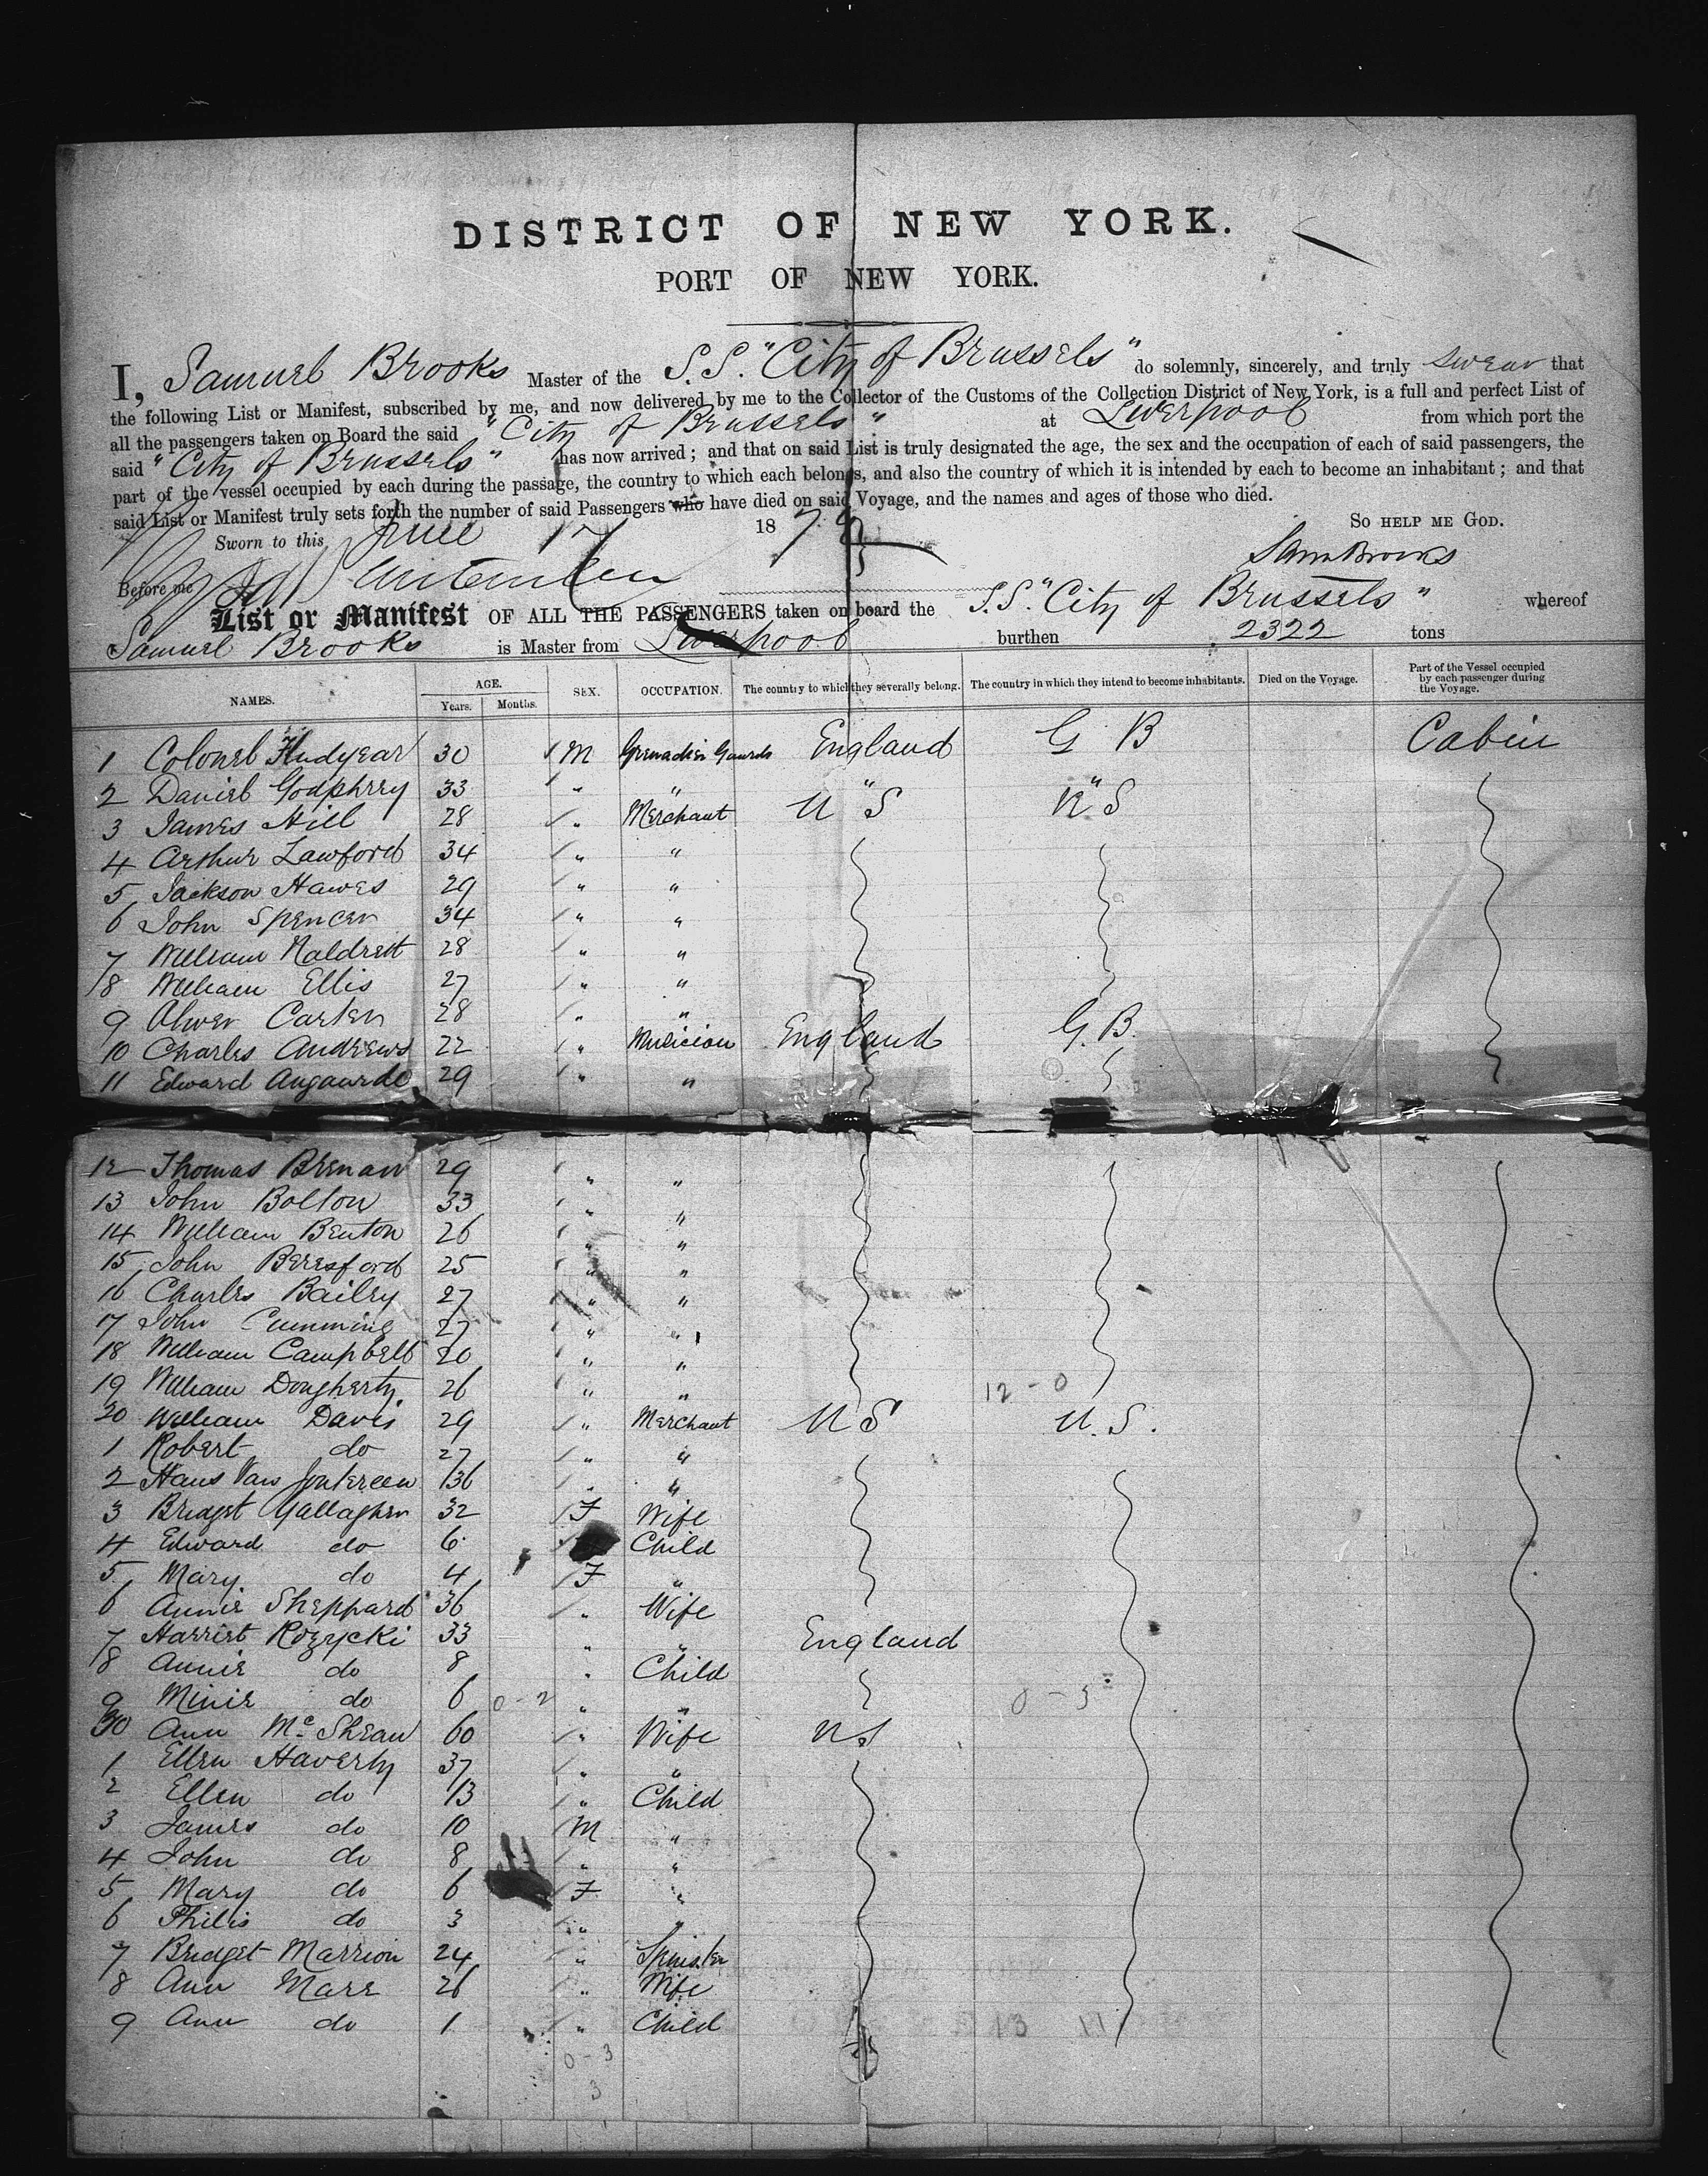 DISTRICT OF NEW YORK.
PORT OF NEW YORK.
I, Samuel Brooks Master of the S.S. "City of Brussels" do solemnly, sincerely, and truly swear that
the following List or Manifest, subscribed by me, and now delivered by me to the Collector of the Customs of the Collection District of New York, is a full and perfect List of
all the passengers taken on Board the said "City of Brussels" at Liverpool from which port the
said "City of Brussels" has now arrived; and that on said List is truly designated the age, the sex and the occupation of each of said passengers, the
part of the vessel occupied by each during the passage, the country to which each belongs, and also the country of which it is intended by each to become an inhabitant; and that
said List or Manifest truly sets forth the number of said Passengers who have died on said Voyage, and the names and ages of those who died.
So HELP ME GOD.
Sworn to this June 17 187
Saml Brooks
Before me
List or Manifest OF ALL THE PASSENGERS taken on board the S.S. "City of Brussels" whereof
Samuel Brooks is Master from Liverpool burthen 2322 tons
NAMES. AGE. Years. Months. SEX. OCCUPATION. The country to which they severally belong. The country in which they intend to become inhabitants. Died on the Voyage. Part of the Vessel occupied by each passenger during the Voyage.
1 Colonel Fludyear 30 M Grenadier Guards England G B Cabin
2 Daniel Godphrey 33 " " " "
3 James Hill 28 " Merchant U S U S
4 Arthur Lawford 34 " "
5 Jackson Hawes 29 " "
6 John Spencer 34 " "
7 William Naldrett 28 " "
8 William Ellis 27 " "
9 Oliver Carter 28 " "
10 Charles Andrews 22 " Musician England G.B.
11 Edward 29 " "
12 Thomas Brenan 29 " "
13 John Bolton 33 " "
14 William Benton 26 " "
15 John Beresford 25 " "
16 Charles Bailey 27 " "
17 John Cumming 27 " "
18 William Campbell 20 " "
19 William Dougherty 26 " " 12 - 0
20 William Davis 29 " Merchant U S U.S.
1 Robert do 27 " "
2 Hans Van 36 " "
3 Bridget Gallagher 32 F Wife
4 Edward do 6 Child
5 Mary do 4 F "
6 Annie Sheppard 36 " Wife
7 Harriet Rozycki 33 " " England
8 Annie do 8 " Child
9 Minie do 6 0 - 2 " " 0 - 3
30 Ann McShean 60 " Wife U S
1 Ellen Haverty 37 " "
2 Ellen do 13 " Child
3 James do 10 M "
4 John do 8 " "
5 Mary do 6 F "
6 Philis do 3 " "
7 Bridget Marrion 24 " Spinster
8 Ann Mare 26 " Wife
9 Ann do 1 " Child 13 11
0 - 3
3